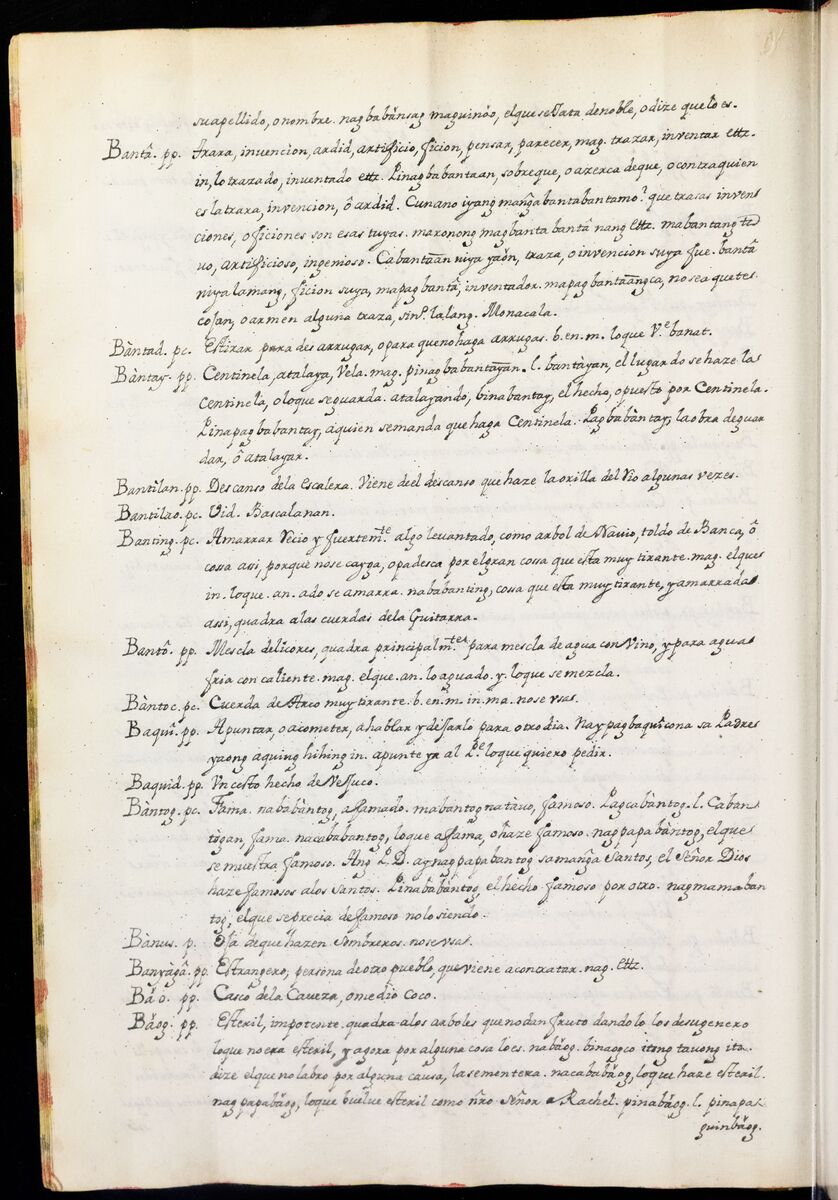 su apellido, o nombre. nagbabánsag maguinóo, el que se Jata de noble, o dize que lo es.
Bantâ. pp. traza, invencion, ardid, artificio, ficion, pensar, parecer, mag. trazar, inventar ettz.
in, lo trazado, inventado ettz. Pinagbabantaan, sobre que, o azerca de que, o contra quien
es la traza, invencion, ô ardid. Cun ano iyang manĝa bantabantamo? que trasas inven
ciones, o ficiones son esas tuyas. maronong magbanta bantâ nang ettz. mabantang
vo, artificioso, ingenioso. Cabantaan niya yaón, traza, o invencion suya fue. bantâ
niya lamang, ficion suya, mapagbantâ, inventador. mapagbantaangca, no sea que te
cojan, o armen alguna traza, sin.º lalang. Monacala.
Bàntad. pc. Estirar para desarrugar, o para que no haga arrugas. b. en. m. lo que V.e banat.
Bàntay. pp. Centinela, atalaya, Vela. mag. pinagbabantayan. l. bantàyan, el lugar do se haze la
centinela, o lo que se guarda. atalayando, binabantay, el hecho, o puesto por Centinela.
Pinapagbabantay, a quien se manda que haga Centinela. Pagbabàntay, la obra de guar
dar, ô atalayar.
Bantilan. pp. Descanso de la escalera. Viene de el descanso que haze la orilla del Rio algunas vezes.
Bantilao. pc. Vid. Bascalanan.
Banting. pc. Amarrar recio y fuertem.te algo levantado, como arbol de Navio, toldo de Banca, ô
cossa assi, porque no se cayga, o padesca por el gran cossa que esta muy tirante. mag. el que
in. lo que. an. ado se amarra. nababanting, cossa que esta muy tirante, y amarrada
assi, quadra a las cuerdas de la Guitarra.
Bantô. pp. Mescla de licores, quadra principalm.te para mescla de agua con Vino, y para agua
fria con caliente. mag. el que. an. lo aguado. y. lo que se mezcla.
Bàntoc. pc. Cuerda de Arco muy tirante. b. en. m. in. ma. no se vsa.
Baquî. pp. Apuntar, o acometer, a hablar y dejarlo para otro dia. Naypagbaquîcona sa Padre
yaong aquing hihing in. apunte ya al P.e lo que quiero pedir.
Baquid. pp. Vn cesto hecho de Vejuco.
Bàntog. pc. Fama. nabàbàntog, afamado. mabantog na tàvo, famoso. Pagcabàntog. l. Caban
tògan, fama. nacababantog, lo que afama, o haze famoso. nagpapabàntog, el que
se muestra famoso. Ang P.D. ay nagpapabantog sa manĝa Santos, el Señor Dios
haze famosos a los Santos. Pinabàbàntog, el hecho famoso por otro. nagmamaban
tog, el que se precia de famoso no lo siendo.
Bànus. p. de que hazen sombreros. no se vsa.
Banyàgâ. pp. Estrangero, persona de otro pueblo, que viene a contratar. nag. ettz.
Bâo. pp. Casco de la Caveza, o medio coco.
Bâog. pp. Esteril, impotente. quadra a los arboles que no dan fruto dandolo los de su genero
lo que no era esteril, y agora por alguna cosa lo es. nabâog. binaogco itong tavong ita
dize el que no labro por alguna causa, la sementera. nacababâog, lo que haze esteril.
nagpapabâog, lo que buelue esteril como nr̃o Señor a Rachel. pinabâog. l. pinapa
guinbâog.